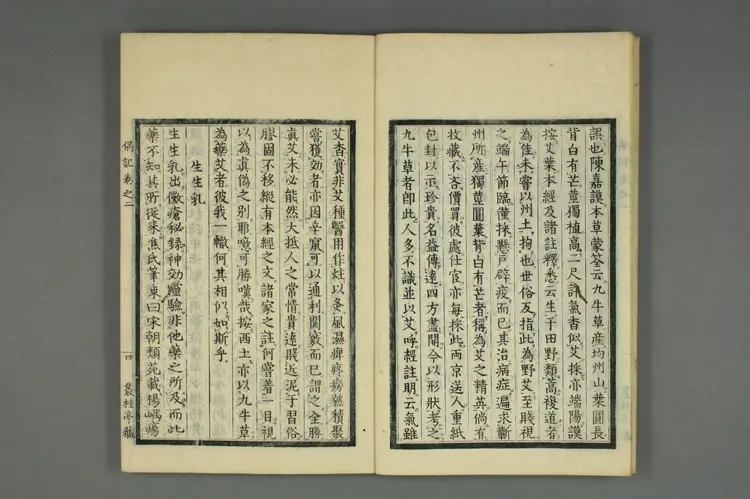 誤也陳嘉謨本草蒙筌云九牛草産均州山葉圓長
背白有芒莖獨植高二尺許氣香似艾採亦端陽謨
按艾葉本經及諸註釋悉云生于田野類蒿複道者
為佳未嘗以州土拘也世俗反指此為野艾至賤視
之端午節臨僅採懸戸辟疫而已其治病症遍求蘄
州所産獨莖圓葉背白有芒者稱為艾之精英倘有
收藏不吝價買彼處仕宦亦毎採此兩京送人重紙
包封以示珍貴名益傳遠四方盡聞今以形狀考之
九牛草者即此人多不識並以艾呼經註明云氣雖
艾香實非艾種醫用作炷以灸風濕痺疼癆熱積聚
嘗獲効者亦因辛竄可以通利關竅而已謂之全勝
真艾未必能然大抵人之常情貴遠賤近泥于習俗
膠固不移縱有本經之文諸家之註何嘗着一目視
以為真偽之別耶噫可勝嘆哉按西土亦以九牛草
為藥艾者彼我一轍何其相似如斯乎
生生乳
生生乳出黴瘡秘録神効體驗非他藥之所及而此
藥不知其所從来焦氏筆乗曰宋朝類苑載楊嵎瘍
偶記卷之二
四
叢桂亭藏